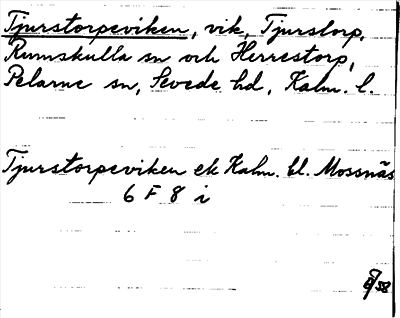 Tjurstorpeviken, vik, Tjurstorp,
Rumskulla sn och Herrestorp,
Pelarne sn, Sevede hd, Kalm. l.
Tjurstorpeviken ek Kalm. bl. Mossnäs
6 F 8 i